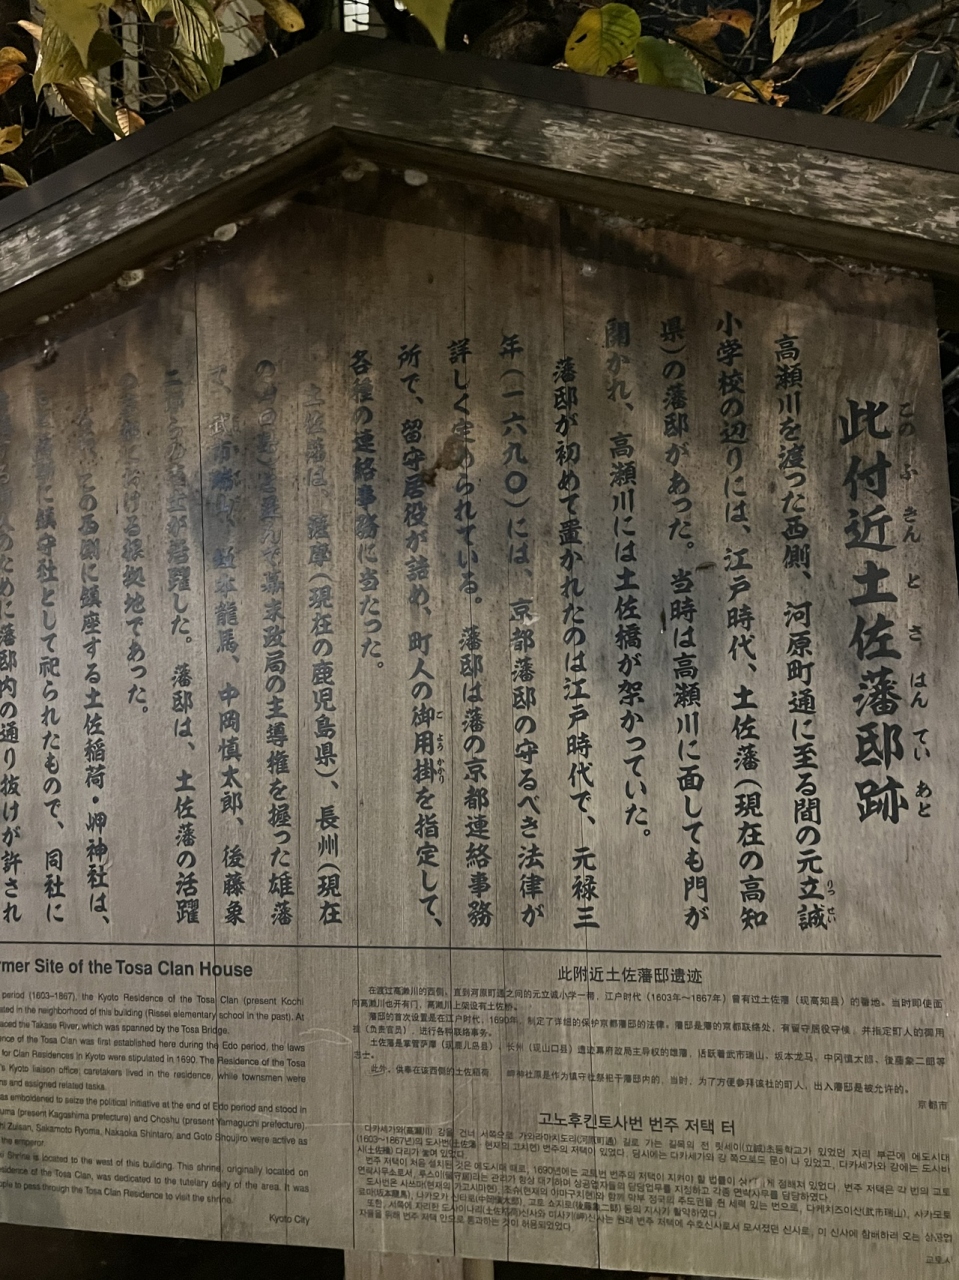 此付近土佐藩邸跡
このふきんとさはんていあと
高瀬川を渡った西側、河原町通に至る間の元立誠
りっせい
小学校の辺りには、江戸時代、土佐藩(現在の高知
県)の藩邸があった。当時は高瀬川に面しても門が
開かれ、高瀬川には土佐橋が架かっていた。
藩邸が初めて置かれたのは江戸時代で、元禄三
年(一六九〇)には、京都藩邸の守るべき法律が
詳しく定められている。藩邸は藩の京都連絡事務
所で、留守居役が詰め、町人の御用掛を指定して、
ごようかかり
各種の連絡事務に当たった。
土佐藩は、薩摩(現在の鹿児島県)、長州(現在
の山口県)と並んで幕末政局の主導権を握った雄藩
で、武市瑞山、坂本龍馬、中岡慎太郎、後藤象
二郎らの志士が活躍した。藩邸は、土佐藩の活躍
における根拠地であった。
この西側に鎮座する土佐稲荷・岬神社は、
に鎮守社として祀られたもので、同社に
のために藩邸内の通り抜けが許され
mer Site of the Tosa Clan House
period (1603–1867), the Kyoto Residence of the Tosa Clan (present Kochi
ated in the neighborhood of this building (Rissei elementary school in the past). At
aced the Takase River, which was spanned by the Tosa Bridge.
nce of the Tosa Clan was first established here during the Edo period, the laws
for Clan Residences in Kyoto were stipulated in 1690. The Residence of the Tosa
's Kyoto liaison office; caretakers lived in the residence, while townsmen were
ns and assigned related tasks.
as emboldened to seize the political initiative at the end of Edo period and stood in
uma (present Kagoshima prefecture) and Choshu (present Yamaguchi prefecture).
hi Zuisan, Sakamoto Ryoma, Nakaoka Shintaro, and Goto Shoujiro were active as
the emperor.
i Shrine is located to the west of this building. This shrine, originally located on
sidence of the Tosa Clan, was dedicated to the tutelary deity of the area. It was
ople to pass through the Tosa Clan Residence to visit the shrine.
Kyoto City
此附近土佐藩邸遗迹
在渡过高濑川的西侧,直到河原町通之间的元立诚小学一带,江户时代(1603年~1867年)曾有过土佐藩(现高知县)的藩地。当时即使面
向高濑川也开有门,高濑川上架设有土佐桥。
藩邸的首次设置是在江户时代,1690年,制定了详细的保护京都藩邸的法律。藩邸是藩的京都联络处,有留守居役守候,并指定町人的御用
挂(负责官员),进行各种联络事务。
土佐藩是掌管萨摩(现鹿儿岛县),长州(现山口县)遗迹幕府政局主导权的雄藩,活跃着武市瑞山,坂本龙马,中冈慎太郎,後藤象二郎等
志士。
此外,供奉在该西侧的土佐稻荷 岬神社原是作为镇守社祭祀于藩邸内的,当时,为了方便参拜该社的町人,出入藩邸是被允许的。
京都市
고노후킨토사번 번주 저택 터
다카세가와(高瀬川) 강을 건너 서쪽으로 가와라마치도리(河原町通) 길로 가는 길목의 전 릿세이(立誠)초등학교가 있었던 자리 부근에 에도시대
(1603~1867년)의 도사번(土佐藩・현재의 고치현) 번주의 저택이 있었다. 당시에는 다카세가와 강 쪽으로도 문이 나 있었고, 다카세가와 강에는 도사바
시(土佐橋) 다리가 놓여 있었다.
교토시